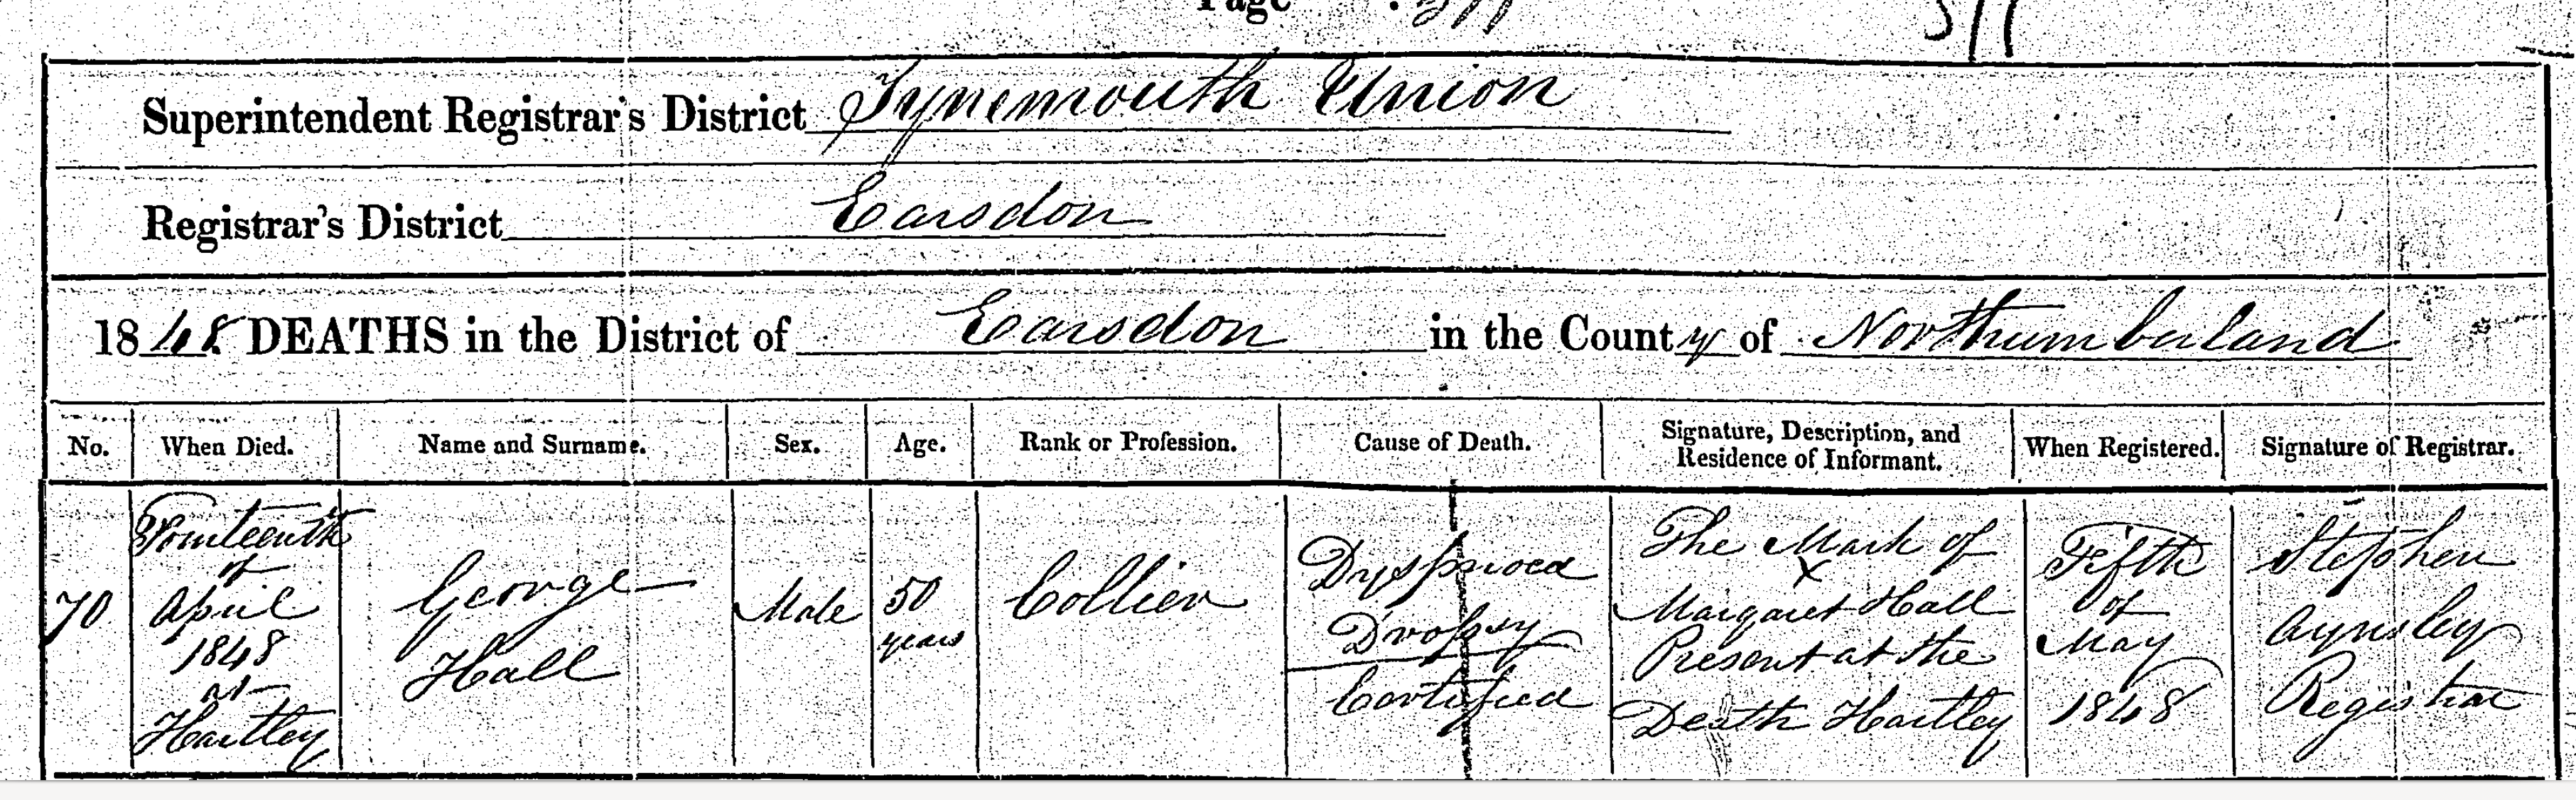 Page
Superintendent Registrar's District Tynemouth Union
Registrar's District Earsdon
1848 DEATHS in the District of Earsdon in the County of Northumberland
No. When Died. Name and Surname. Sex. Age. Rank or Profession. Cause of Death. Signature, Description, and Residence of Informant. When Registered. Signature of Registrar.
70
Fourteenth
of
April
1848
at
Hartley
George
Hall
Male
50
years
Collier
Dyspnoea
Dropsy
Certified
The Mark of
X
Margaret Hall
Present at the
Death Hartley
Fifth
of
May
1848
Stephen
Aynsley
Registrar